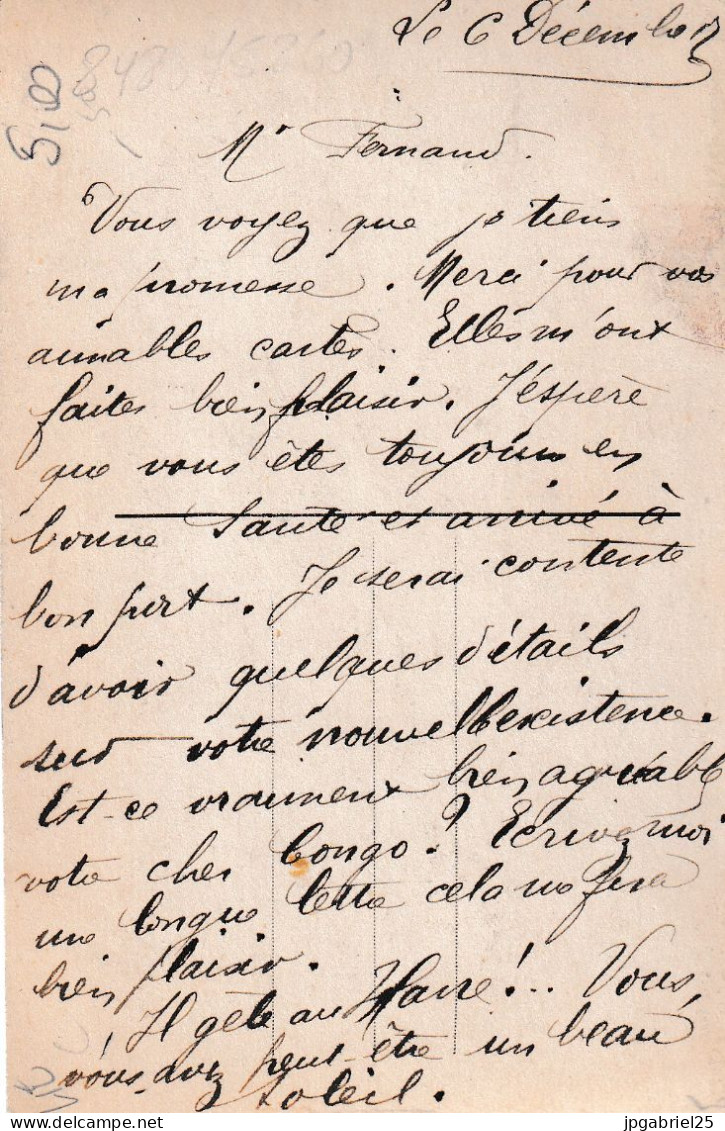 Le 6 Décembre
5,00
Mr Fernand.
Vous voyez que je tiens
ma promesse. Merci pour vos
aimables cartes. Elles m'ont
faites bien plaisir. J'éspère
que vous êtes toujours en
bonne Santé et arrivé à
bon port. Je serai contente
d'avoir quelques détails
sur votre nouvelle existence.
Est-ce vraiment bien agréable
votre cher Congo? Ecrivez moi
une longue lettre cela me fera
bien plaisir.
Il gèle au Havre!.. Vous,
vous avez peut-être un beau
soleil.
jpgabriel25